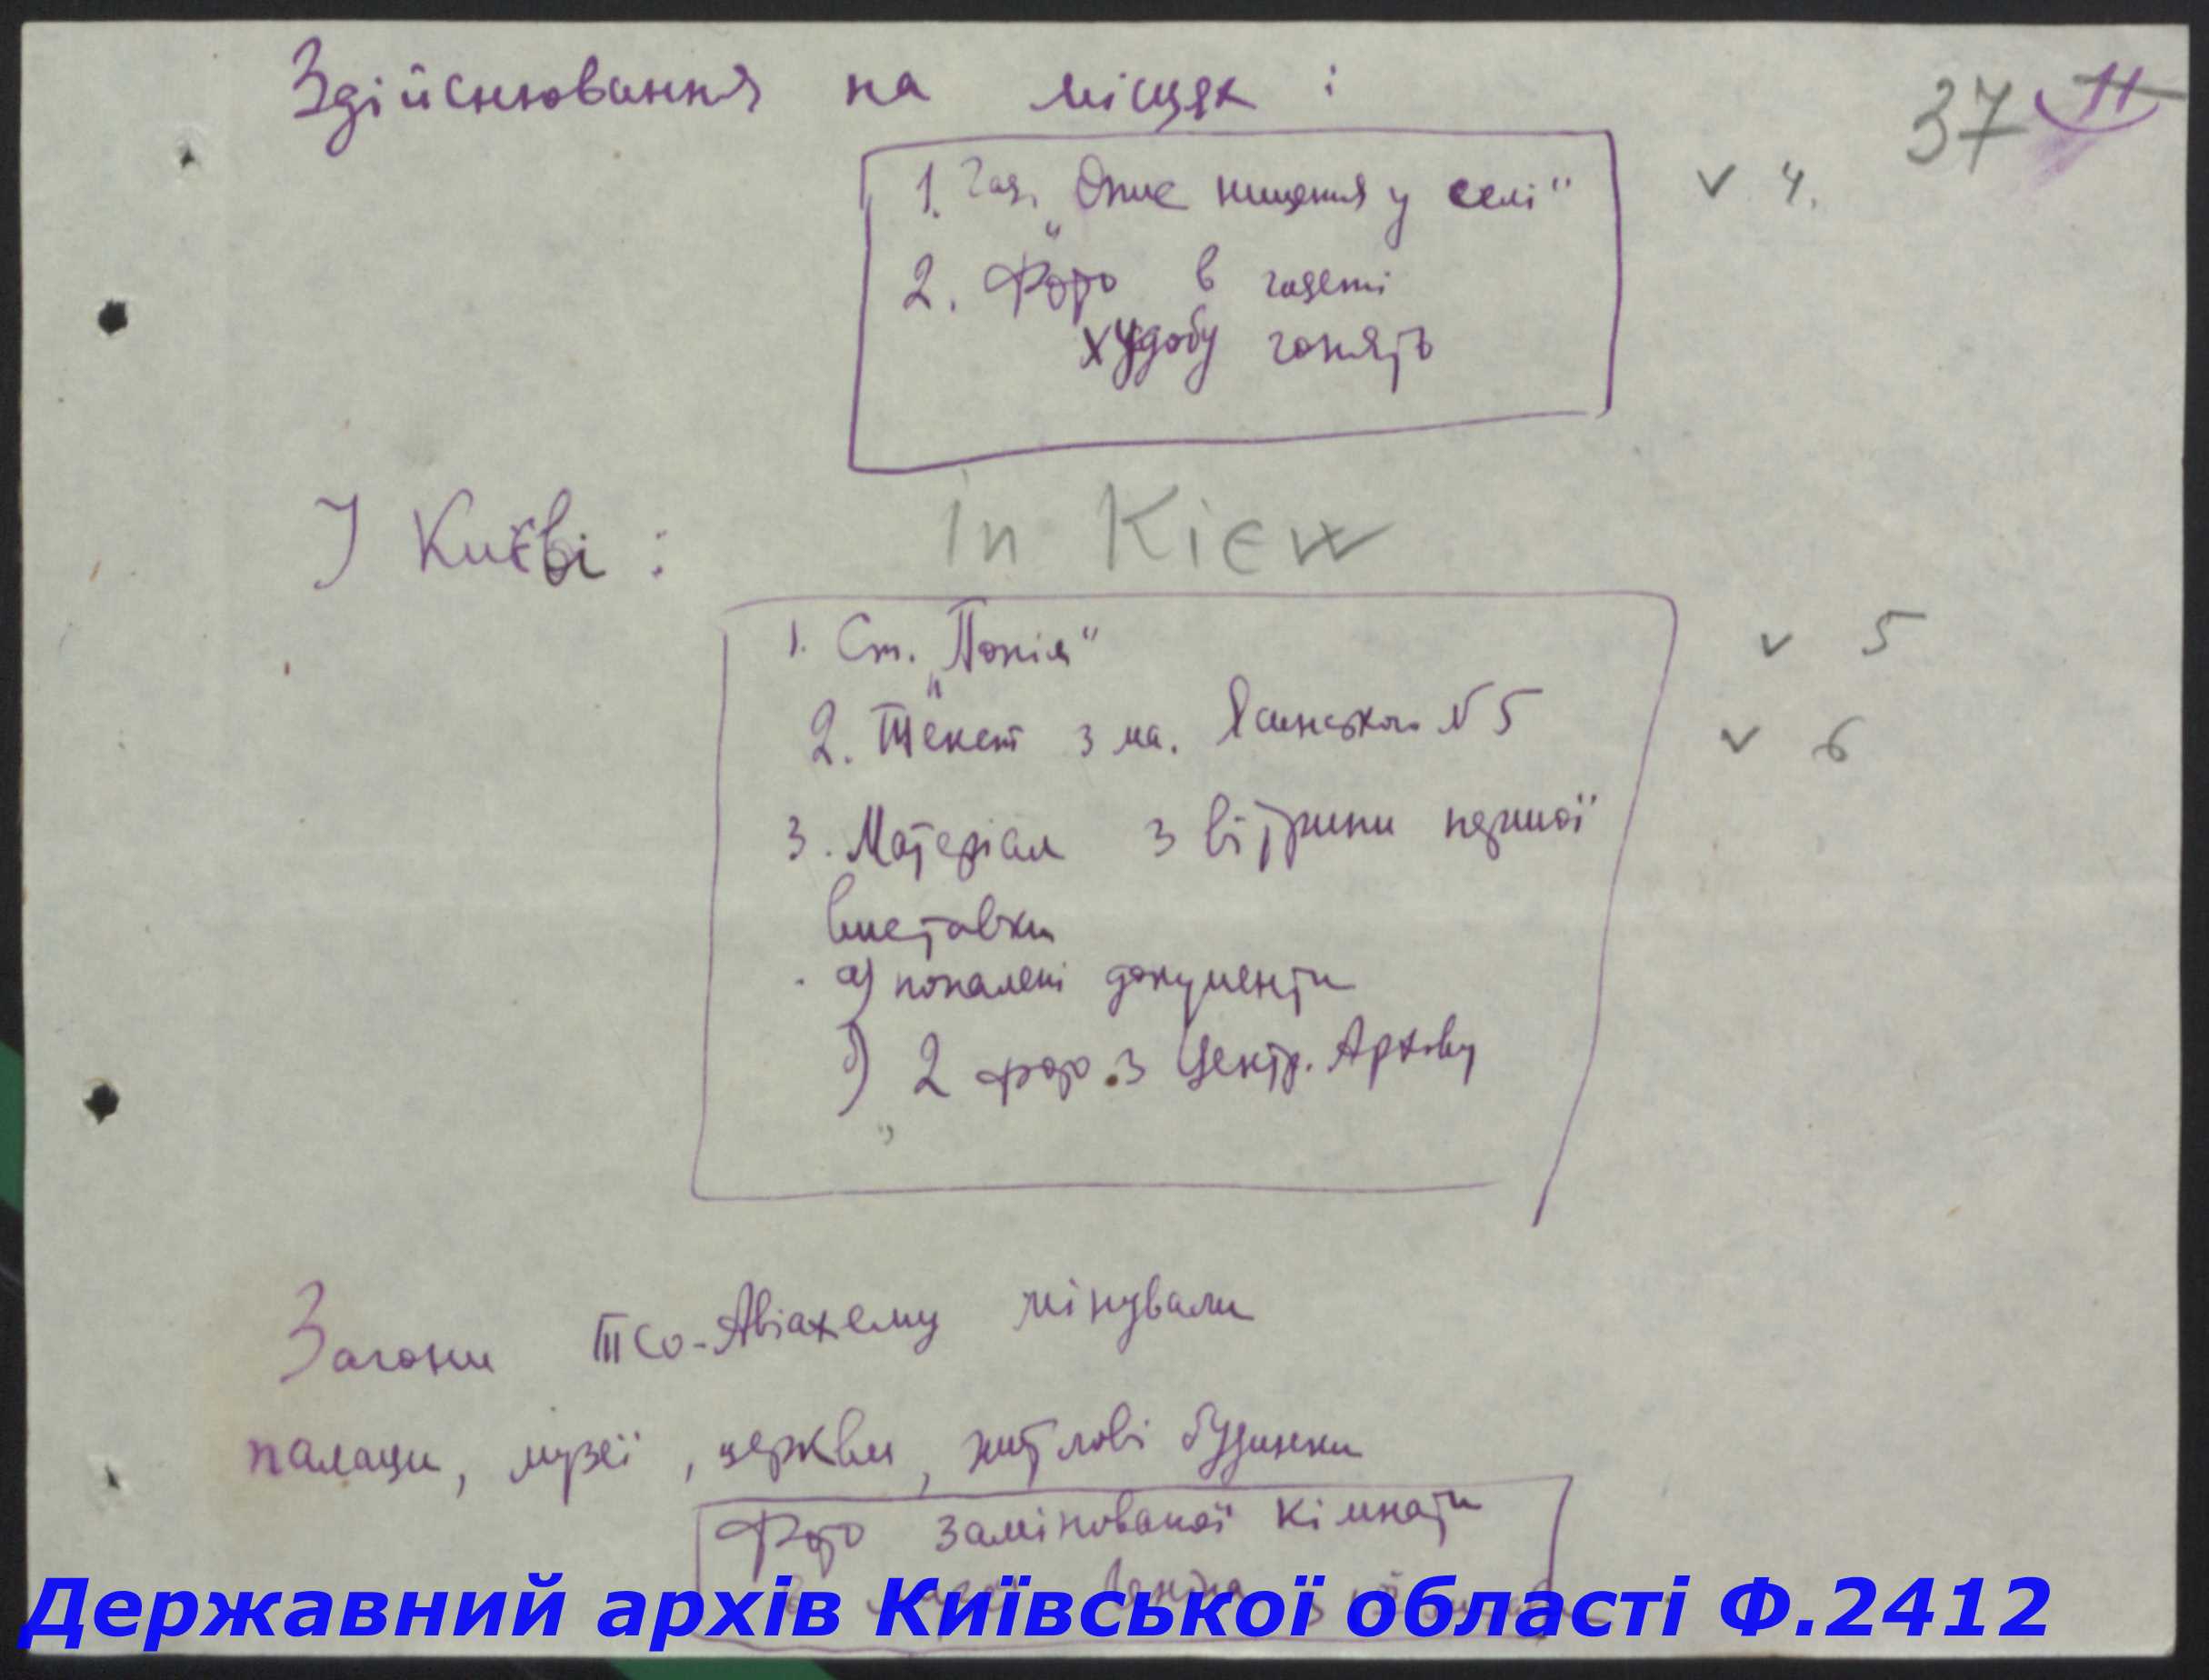 Здійснювання на місцях :
37 11
1. Газ. „Опис нищення у селі“
v 4.
2. Фото в газеті
худобу гонять
У Київі :
in Kiew
1. Ст. „Попіл“
v 5
2. Текст з ма. №5
v 6
3. Матеріал з вітрини першої
виставки
а) попалені документи
б) 2 фото з Центр. Архіву
Загони Тсо-Авіахему мінували
палаци, музеї, церкви, житлові будинки
Фото замінованої кімнати
в музеї Леніна з
Державний архів Київської області Ф.2412